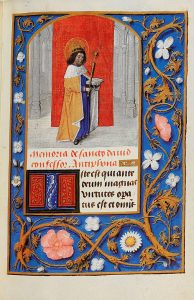 Memoria de sancto dauid
confessor. Antiphona.
Iste est qui ante
deum magnas
uirtutes opera
tus est et omnis